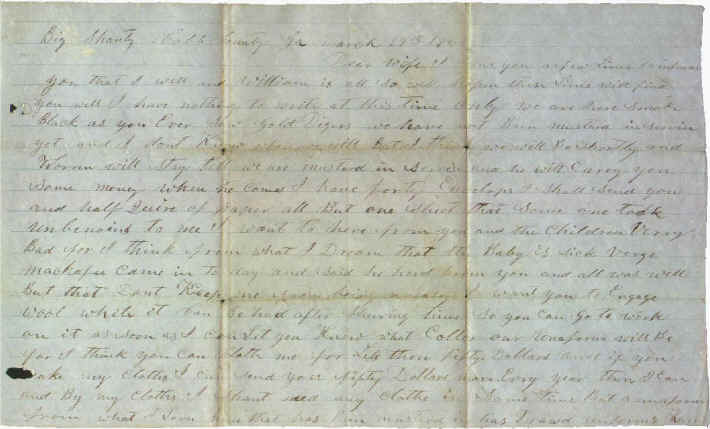 Big Shanty Cobb County Ga march 29th 186
Dear Wife I you a few lines to inform
you that I will and William is all so well hopin these lines will find
you well I have nothing to write at this time only we are here Smoke
Black as you Ever Saw gold Digers we have not Bin mustard in Servis
yet and I dont Know when we will But I think we will Be Shortly and
Worren will Stay till we are mustard in Servis and he will Carry you
Some money when he Comes I have forty Envelops I Shall Send you
and half Quire of paper all But one Sheet that Some one took
unbenoins to me I want to here from you and the Children Verry
Bad for I think from what I Dream that the Baby is sick Verge
mackafee Came in to day and said he heard from you and all was well
But that Dont Keep me from being uneasy I want you to Engage
wool while it can be had after Shering time So you Can go to work
on it as soon as I Can let you Know what Coller our unaform will Be
for I think you Can Cloth me for less then fifty Dollars and if you
make my Cloths I Can Send you fifty Dollars more Evry year then I Can
and By my Cloths I Shant need any Cloths in Some time But a unaform
from what I Seen them that has Bin mustard in has